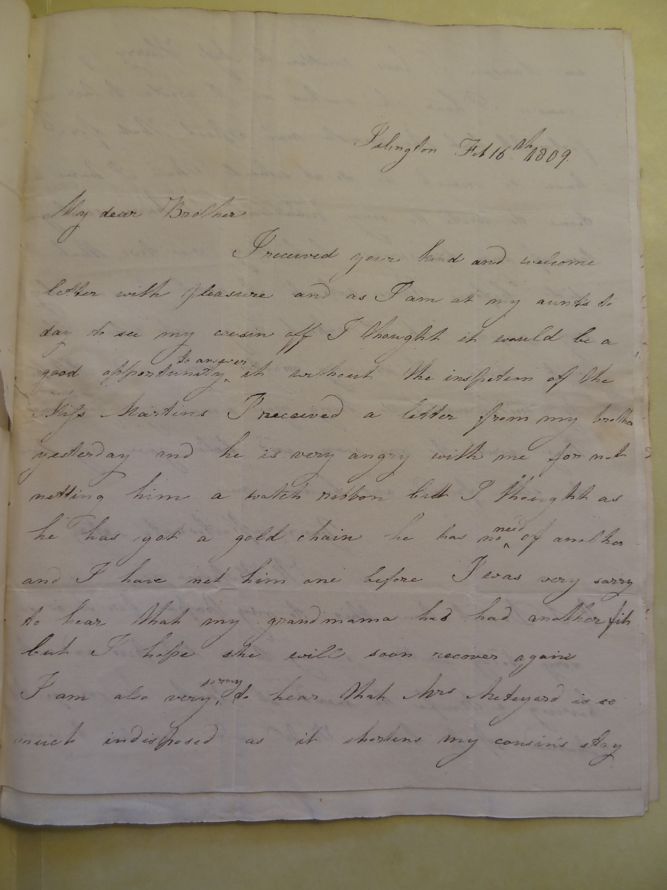 Islington Feb 16th 1809
My dear Brother
I received your kind and welcome
letter with pleasure and as I am at my aunts to
day to see my cousin off I thought it would be a
good opportunity to answer it without the inspetion of the
Miss Martins I received a letter from my brother
yesterday and he is very angry with me for not
netting him a watch ribbon but I thought as
he has got a gold chain he has no need of another
and I have net him one before I was very sorry
to hear that my grandmama had had another fit
but I hope she will soon recover again
I am also very sorry to hear that Mrs Meteyard is so
much indisposed as it shortens my cousin's stay